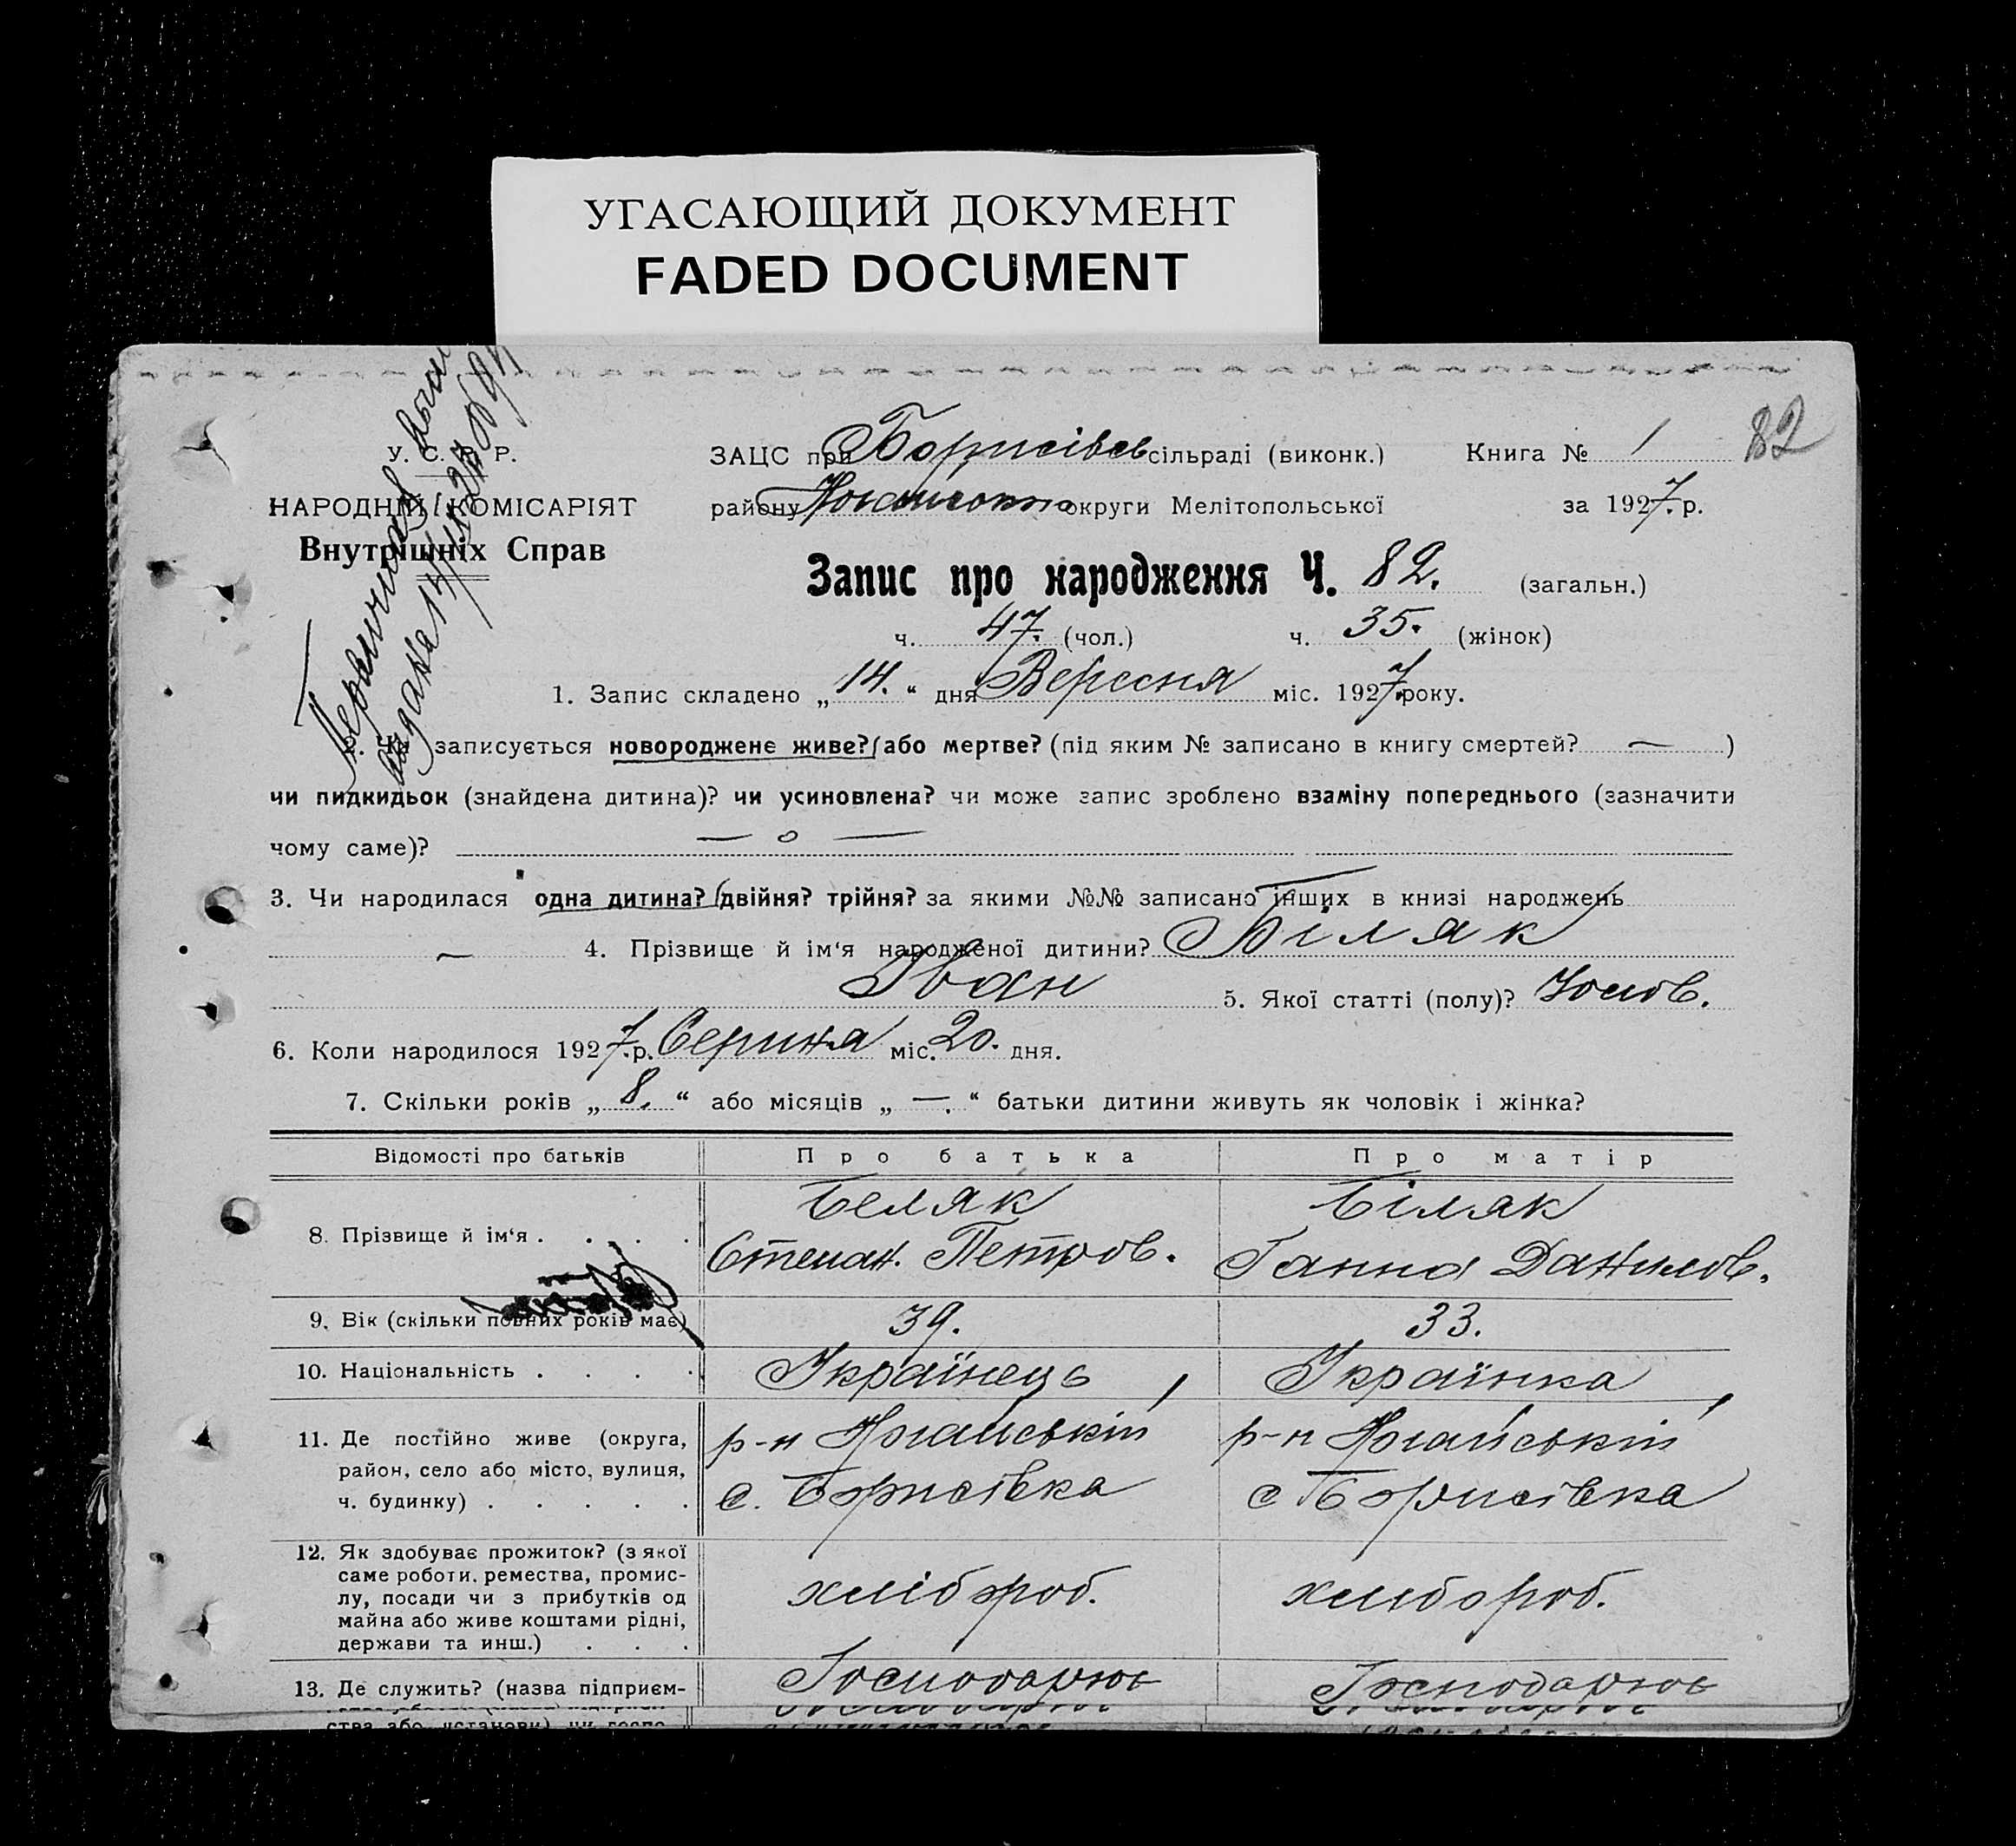 УГАСАЮЩИЙ ДОКУМЕНТ
FADED DOCUMENT
82
У. С. Р. Р.
НАРОДНІЙ КОМІСАРІЯТ
Внутрішніх Справ
ЗАЦС при Борисівс сільраді (виконк.) Книга № 1
району округи Мелітопольської за 1927. р.
Запис про народження Ч. 82. (загальн.)
ч. 47. (чол.) ч. 35. (жінок)
1. Запис складено „14.“ дня Вересня міс. 1927. року.
записується новороджене живе? або мертве? (під яким № записано в книгу смертей? — )
чи пидкидьок (знайдена дитина)? чи усиновлена? чи може запис зроблено взаміну попереднього (зазначити
чому саме)? — о —
3. Чи народилася одна дитина? двійня? трійня? за якими №№ записано інших в книзі народжень
— 4. Прізвище й ім‘я народженої дитини? Біляк
Іван 5. Якої статті (полу)? Чолов.
6. Коли народилося 1927. р. Серпня міс. 20. дня.
7. Скільки років „8.“ або місяців „—.“ батьки дитини живуть як чоловік і жінка?
Відомості про батьків Про батька Про матір
8. Прізвище й ім‘я . . . . Беляк Біляк
Степан. Петров. Ганна Данилов.
9. Вік (скільки повних років має) 39. 33.
10. Національність . . . . Українець Українка
11. Де постійно живе (округа, р-н Ногайський р-н Ногайський
район, село або місто, вулиця,
ч. будинку) . . . . . с. Борисівка с Борисівка
12. Як здобуває прожиток? (з якої
саме роботи, ремества, промис-
лу, посади чи з прибутків од хлібороб. хлибороб.
майна або живе коштами рідні,
держави та инш.) . . .
13. Де служить? (назва підприєм- Господарює Господарює
ства або установи) чи госпо-